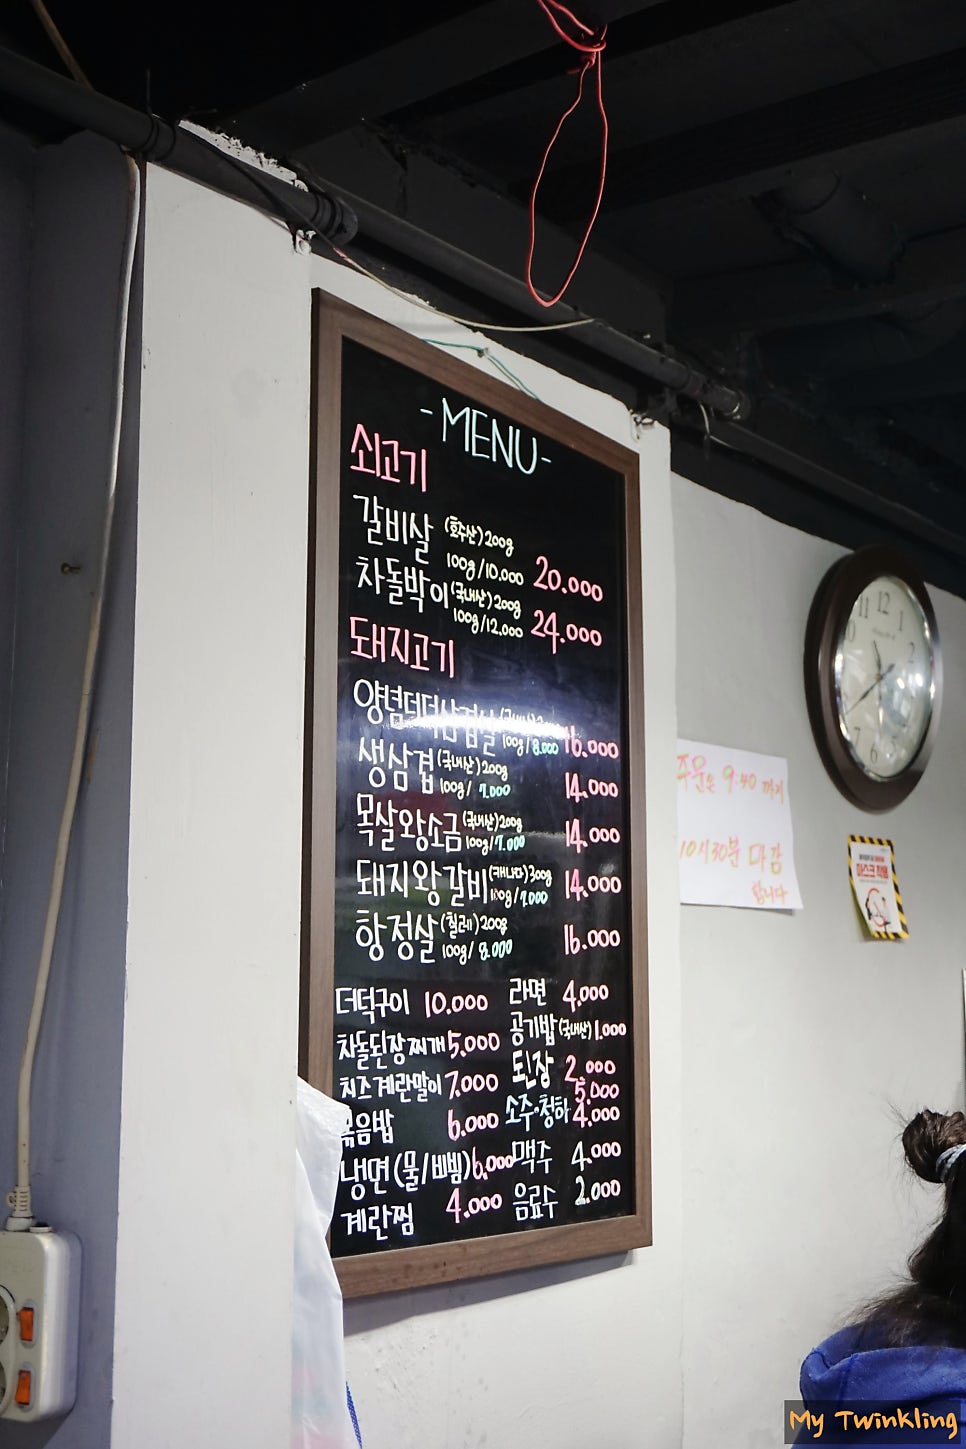 -MENU-
쇠고기
갈비살 (호주산) 200g
100g/10.000 20.000
차돌박이 (국내산) 200g
100g/12.000 24.000
돼지고기
양념더덕삼겹살
100g/8.000 16.000
생삼겹 (국내산) 200g
100g/7.000 14.000
목살왕소금 (국내산) 200g
100g/7.000 14.000
돼지왕갈비 (캐나다) 300g
100g/7.000 14.000
항정살 (칠레) 200g
100g/8.000 16.000
더덕구이 10.000
차돌된장찌개 5.000
치즈계란말이 7.000
볶음밥 6.000
냉면(물/비빔) 6.000
계란찜 4.000
라면 4.000
공기밥 (국내산) 1.000
된장 2.000
소주·청하 5.000
4.000
맥주 4.000
음료수 2.000
주문은 9:40 까지
10시30분 마감
합니다
11 12 1
2
7 6
마스크 착용
My Twinkling